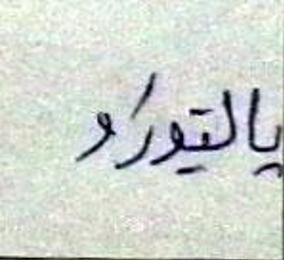 پالتیورَو